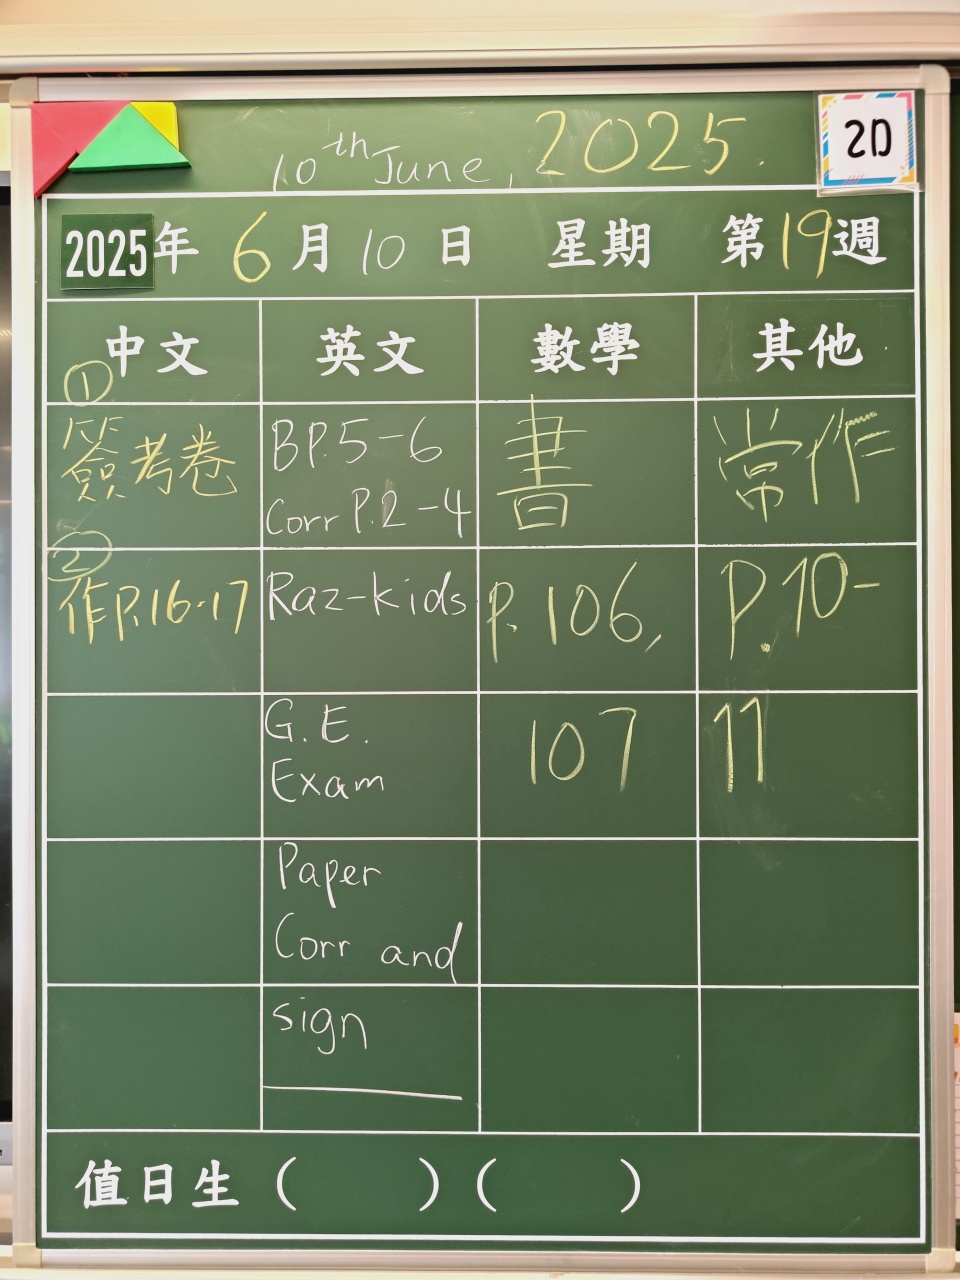 10th June, 2025.
2D
2025年 6月10日 星期 第19週
中文 英文 數學 其他
①
簽考卷
②
作P.16-17
BP.5-6
Corr P.2-4
Raz-kids
G.E.
Exam
Paper
Corr and
sign
書
P.106,
107
常作
P.10-
11
值日生 ( ) ( )